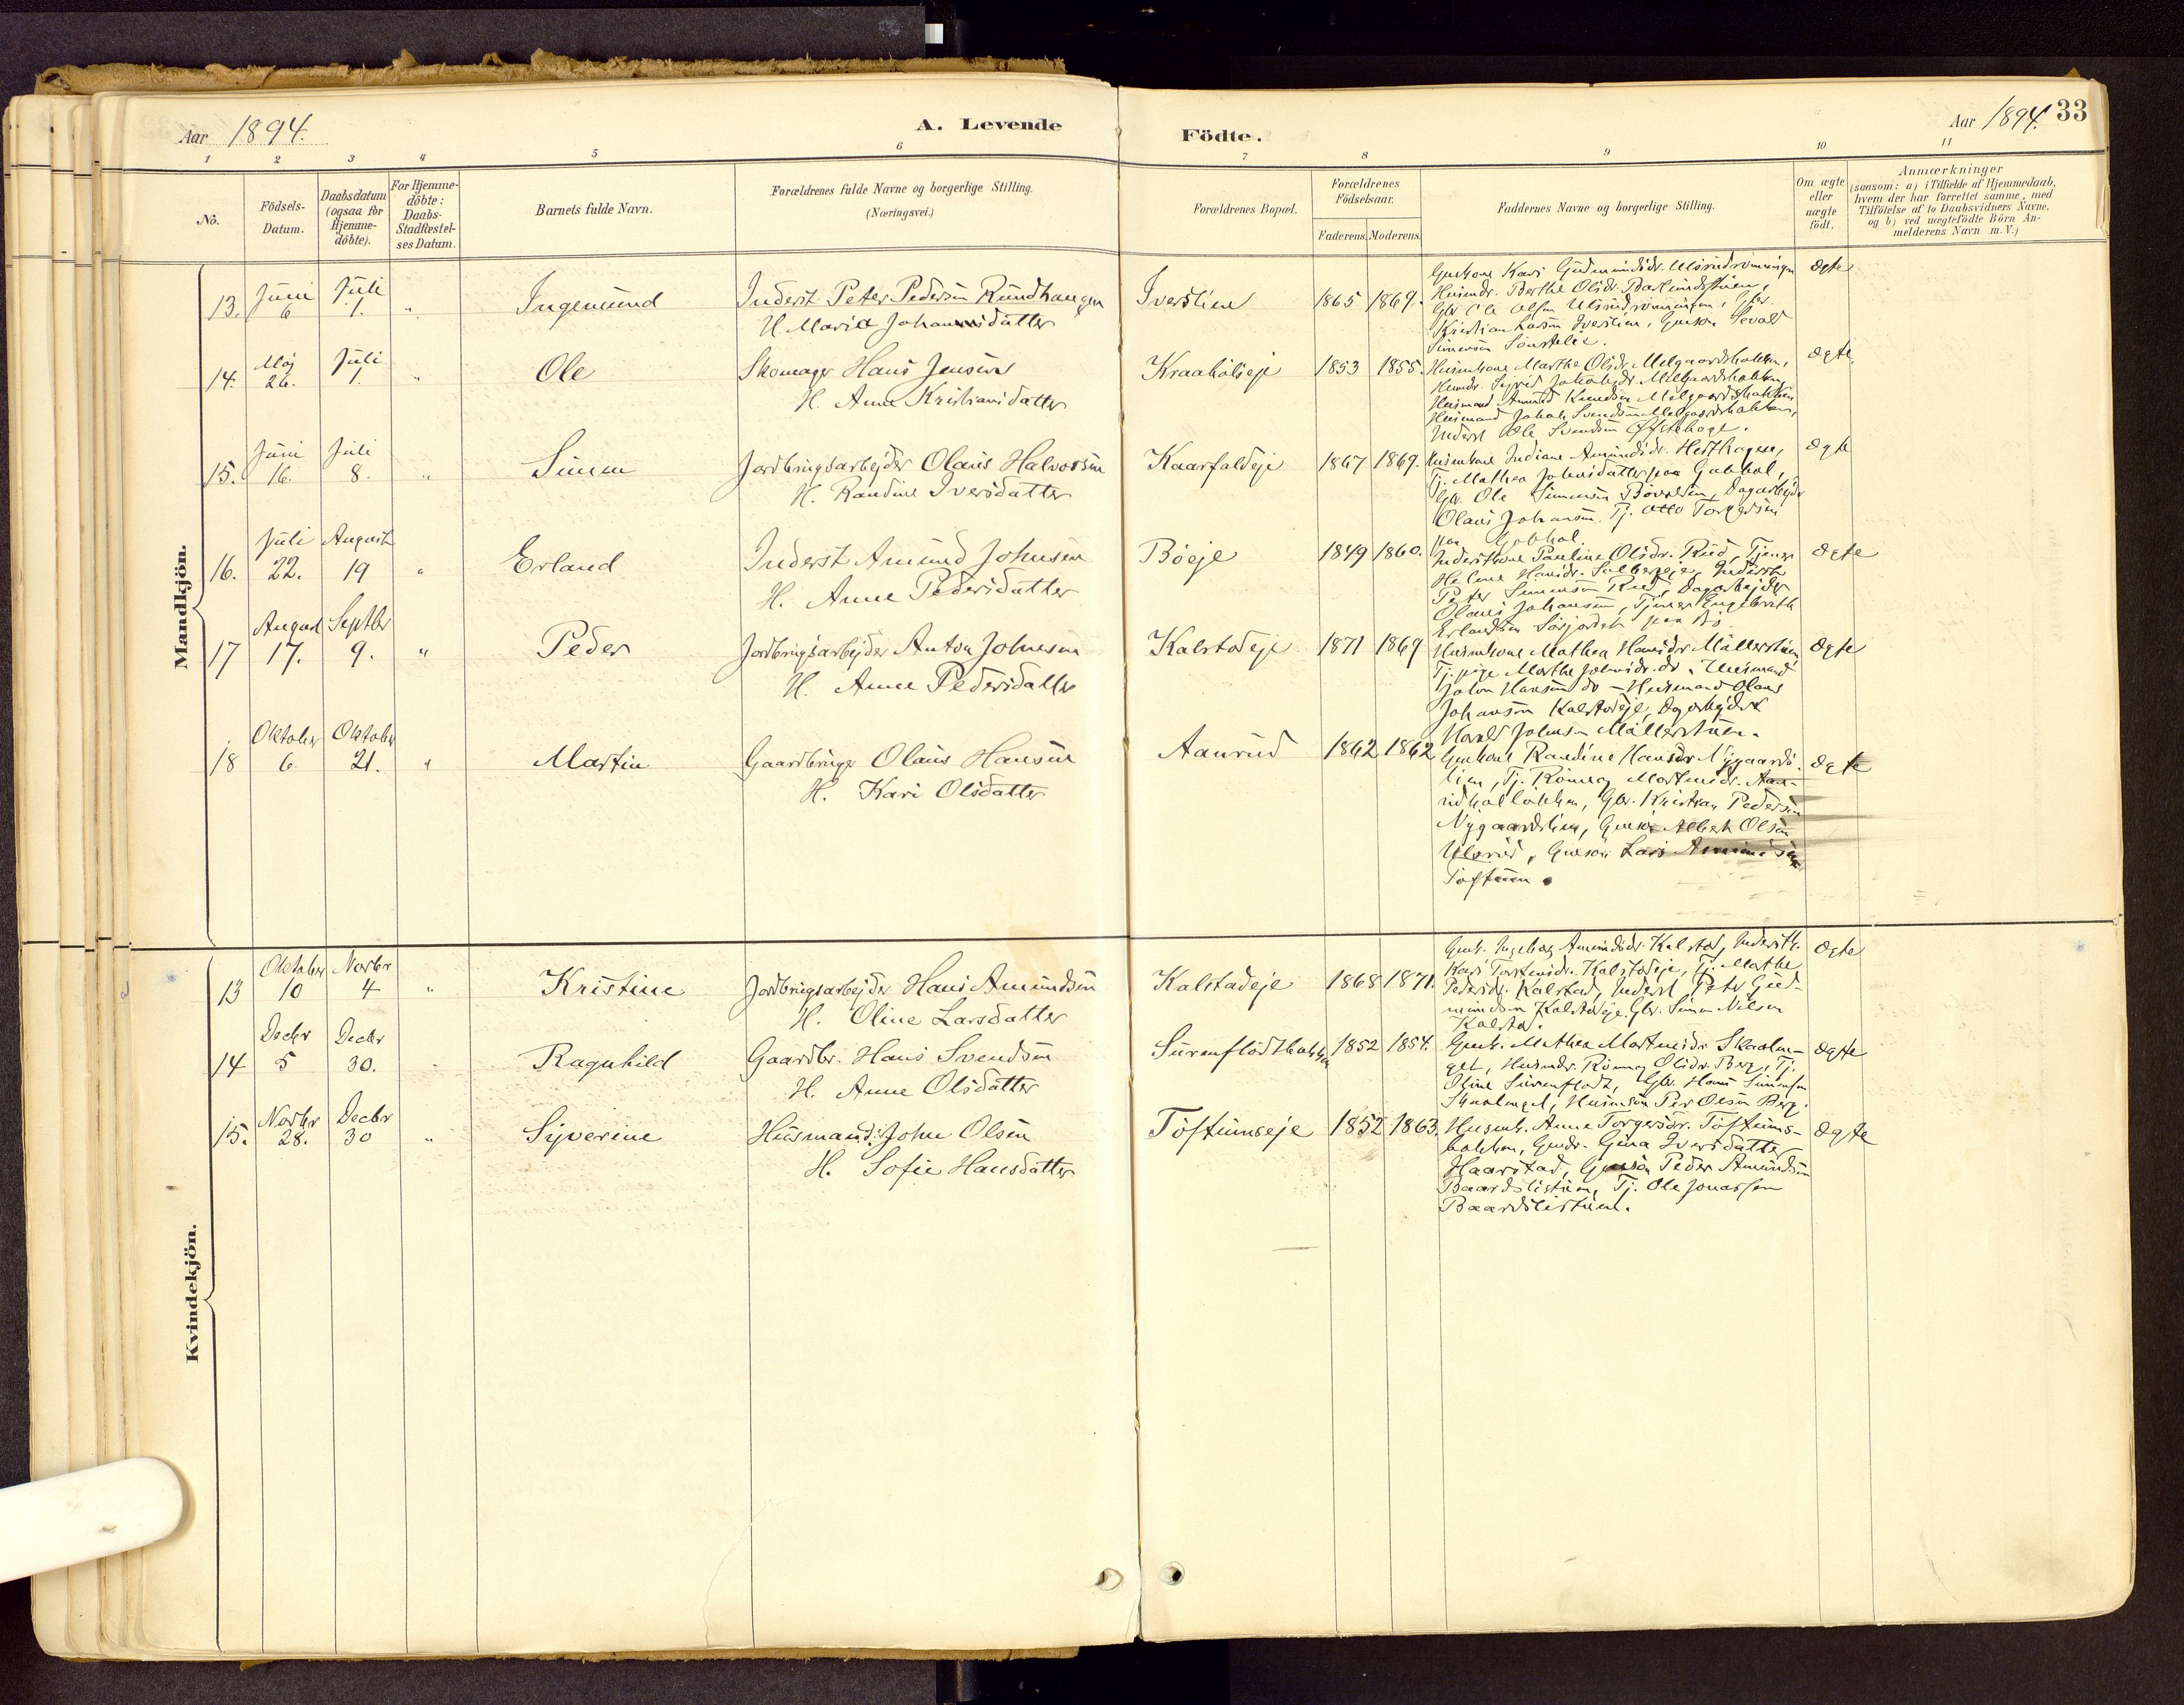 Aar 1894.
A. Levende
Födte.
Aar 1894. 33
1 2 3 4 5 6 7 8 9 10 11
No.
Födsels-
Datum.
Daabsdatum
(ogsaa for
Hjemme-
döbte).
For Hjemme-
döbte:
Daabs-
Stadfæstel-
ses Datum.
Barnets fulde Navn.
Forældrenes fulde Navne og borgerlige Stilling.
(Næringsvei.)
Forældrenes Bopæl.
Forældrenes
Födselsaar.
Faderens. Moderens.
Faddernes Navne og borgerlige Stilling.
Om ægte
eller
uægte
födt.
Anmærkninger
(saasom: a) i Tilfælde af Hjemmedaab,
hvem der har forrettet samme, med
Tilföielse af to Daabsvidners Navne,
og b) ved uægtefödte Börn An-
melderens Navn m. V.)
Mandkjön.
13. Juni 6 Juli 1. " Ingemund
Inderst Peter Pedersen Rundhaugen
H. Maria Johannesdatter
Iverslien 1865 1869.
Gaardkone Kari Gudmundsdr. Ulsrudrønningen
Husmdr. Berthe Olsdr.
Gbr Ole Olsen Ulsrudrønningen, Gbr.
Kristian Larsen Iverslien, Sevald
Simensen
ægte
14. Maj 26. Juli 1. " Ole
Skomager Hans Jensen
H. Anne Kristiansdatter
Kraabölseje 1853 1855.
Husmkone Marthe Olsdr. Melgaardsbakken,
Husmdr. Sigrid Jakobsdr. Melgaardsbakken
Husmand Amund Knudsen Melgaardsbakken
Husmand Jakob Svendsen Melgaardsbakken,
Inderst Ole Svendsen
ægte
15. Juni 16. Juli 8. " Simen
Jordbrugsarbejder Olaus Halvorsen
H. Randine Iversdatter
Kaarfaldeje 1867 1869.
Husmkone Indiane Amundsdr. Hesthagen,
Tj. Mathea Johnsdatter paa Gobhol,
Gbr. Ole Simensen Dagarbejder
Olaus Johansen. Tj. Otto Torgersen
paa Gobhol.
ægte
16. Juli 22. August 19 " Erland
Inderst Amund Johnsen
H. Anne Pedersdatter
Böeje 1849 1860.
Inderstkone Pauline Olsdr. Rud, Tjener
Helene Hansdr. Solbergeje, Inderst
Peter Simensen Rud, Dagarbejder
Olaus Johansen, Tjener Engebreth
Erlandsen Sörjordet paa Bö
ægte
17 August 17. Septbr 9. " Peder
Jordbrugsarbejder Anton Johnsen
H. Anne Pedersdatter
Kalstadeje 1871 1869
Husmkone Mathea Hansdr Möllerstuen,
Tj.pige Marthe Johnsdr. do. Husmand
John Hansen do - Husmand Olaus
Johansen Kalstadeje, Dagarbejder
Harald Johnsen Möllerstuen.
ægte
18 Oktober 6 Oktober 21. " Martin
Gaardbruger Olaus Hansen
H. Kari Olsdatter
Aanrud 1862 1862
Gmkone Randine Hansdr Nygaards-
lien, Tj. Rönnog Mortensdr. Aan-
rudholløkken, Gbr. Kristian Pedersen
Nygaardslien, Gmsön Albert Olsen
Ulsrud, Gmsön Lars Amundsen
Toftuen.
ægte
Kvindekjön.
13 Oktober 10 Novbr 4 " Kristine
Jordbrugsarbejder Hans Amundsen
H. Oline Larsdatter
Kalstadeje 1868 1871.
Gmk. Ingeborg Amundsdr. Kalstad, Inderstk.
Kari Torstensdr. Kalstadeje, Tj. Mathe
Pedersdr. Kalstad, Inderst Peter Gud-
mundsen Kalstadeje. Gbr. Simen Nilsen
Kalstad.
ægte
14 Decbr 5 Decbr 30. " Ragnhild
Gaardbr. Hans Svendsen
H. Anne Olsdatter
Surenflödtbakken 1852 1854.
Gmk. Mathea Mortensdr Skaalen-
get, Husmdr. Rönnog Olsdr. Berg, Tj.
Oline Surenflödt, Gbr. Hans Simensen
Skaalenget, Husmsön Per Olsen Berg.
ægte
15. Novbr 28. Decbr 30 " Syverine
Husmand: John Olsen
H. Sofie Hansdatter
Töftumseje 1852 1863.
Husmk. Anne Torgersdr. Töftums-
bakken, Gmdr. Gina Iversdatter
Haarstad, Gmsön Peder Amundsen
Baardslistuen, Tj. Ole Jonassen
Baardslistuen.
ægte